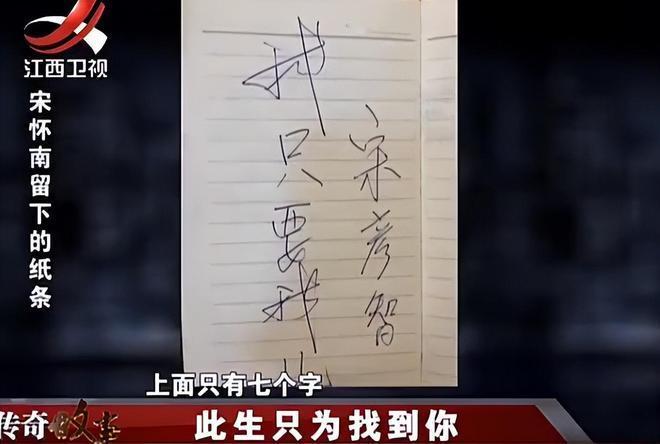 江西卫视
宋怀南留下的纸条
我只要找
宋彦智
上面只有七个字
传奇故事
此生只为找到你